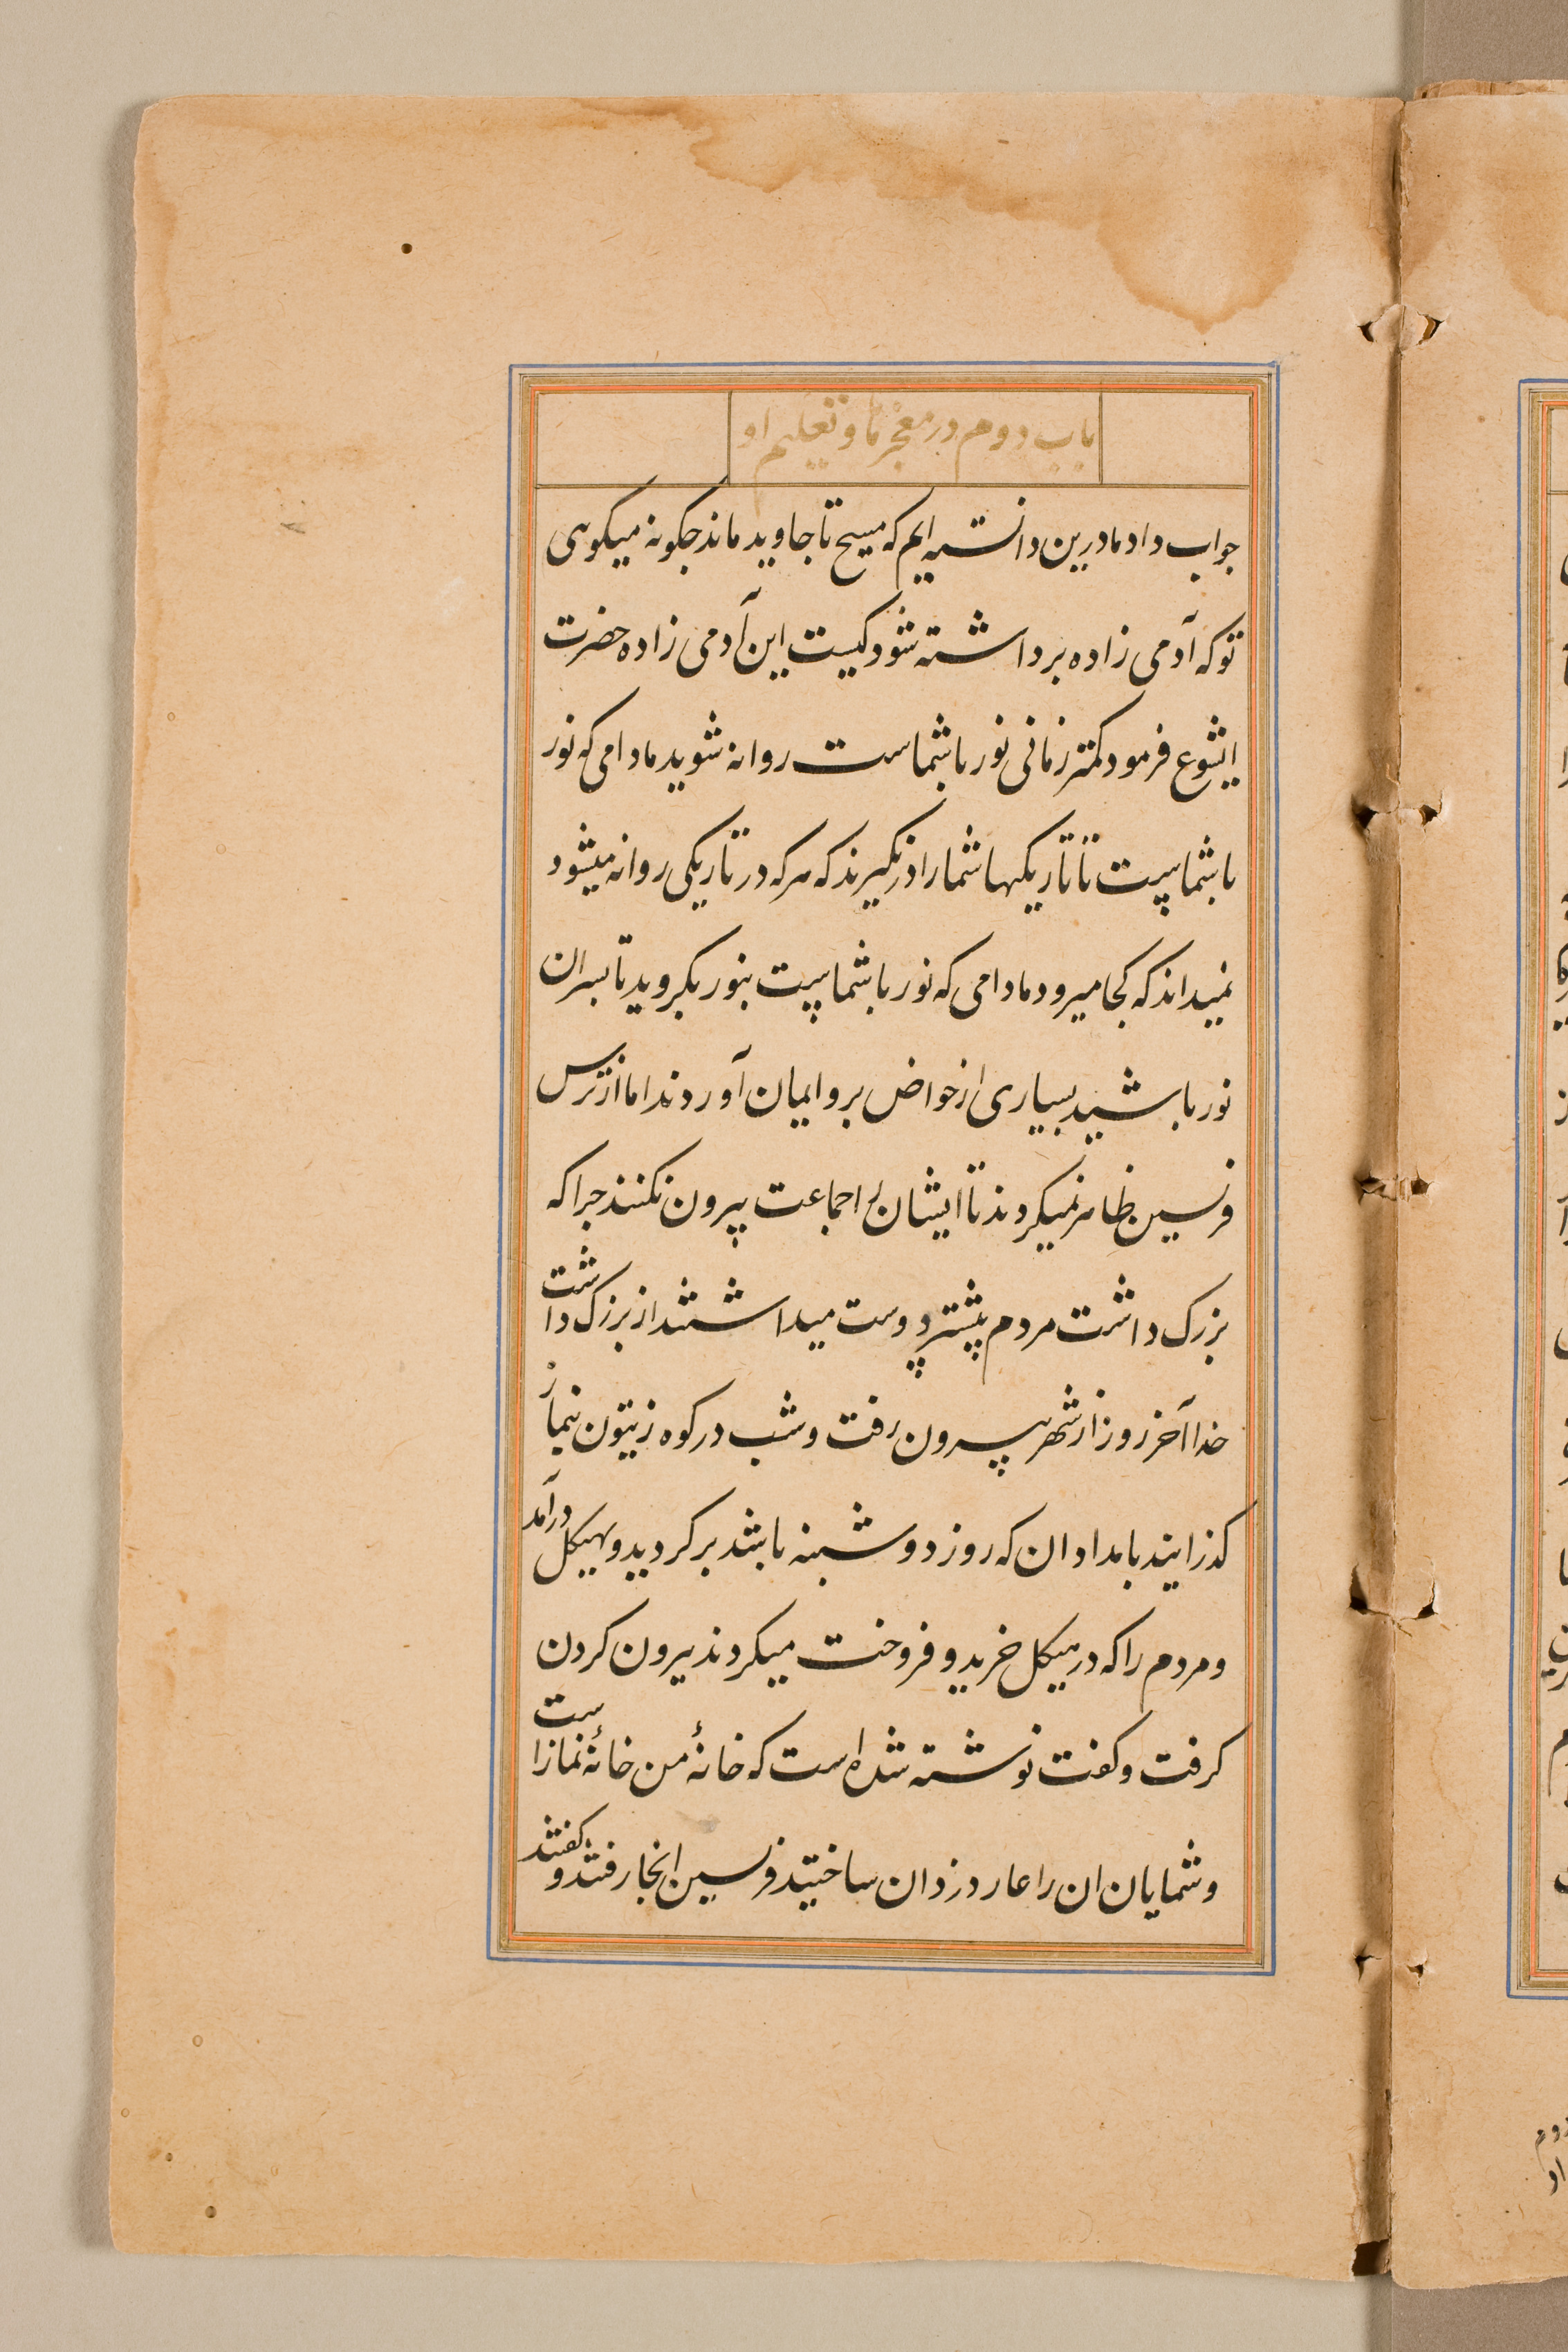 باب دوم در معجزها و تعلیم او
جواب داد مادرین دانسته ایم که مسیح تا جاوید ماند جکونه میکوہی
تو که آدمی زاده برداشته شود کیست این آدمی زاده حضرت
ایشوع فرمود کمتر زمانی نور با شماست روانه شوید مادامی که نور
با شماست تا تاریکیها شما را در نکیرند که هر که در تاریکی روانه میشود
نمیداند که کجا میرود مادامی که نور با شماست بنور بکروید تا بسران
نور باشید بسیاری از خواص برو ایمان آوردند اما از ترس
فرنسین ظاهر نمیکردند تا ایشان را جماعت بیرون نکنند جرا که
بزرک داشت مردم بیشتر دوست میداشتند از بزرک داشت
خدا آخر روز از شهر بیرون رفت و شب در کوه زیتون بنماز
کذرانید بامدادان که روز دوشبنه باشد بر کردید و بهیکل درآمد
و مردم را که در هیکل خرید و فروخت میکردند بیرون کردن
کرفت و کفت نوشته شده است که خانهٔ من خانهٔ نماز است
و شمایان ان را غار دزدان ساختید فرنسین انجا رفتند و کفتند